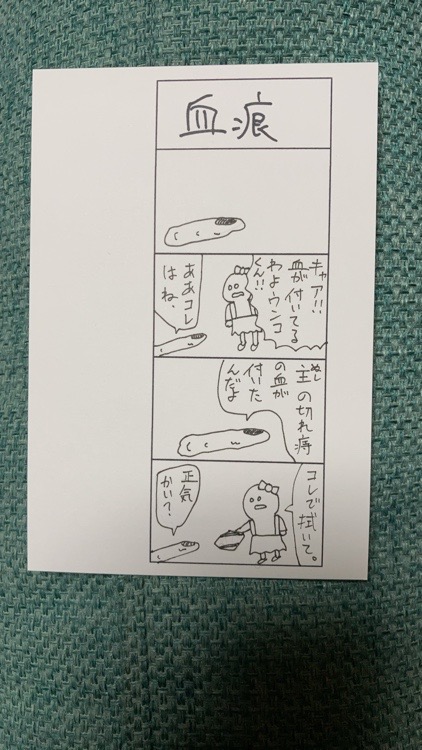 血痕
キャア!!
血が付いてる
わよウンコ
くん!!
ああコレ
はね、
主の切れ痔
ぬし
の血が
付いた
んだよ
コレで拭いて。
正気
かい?